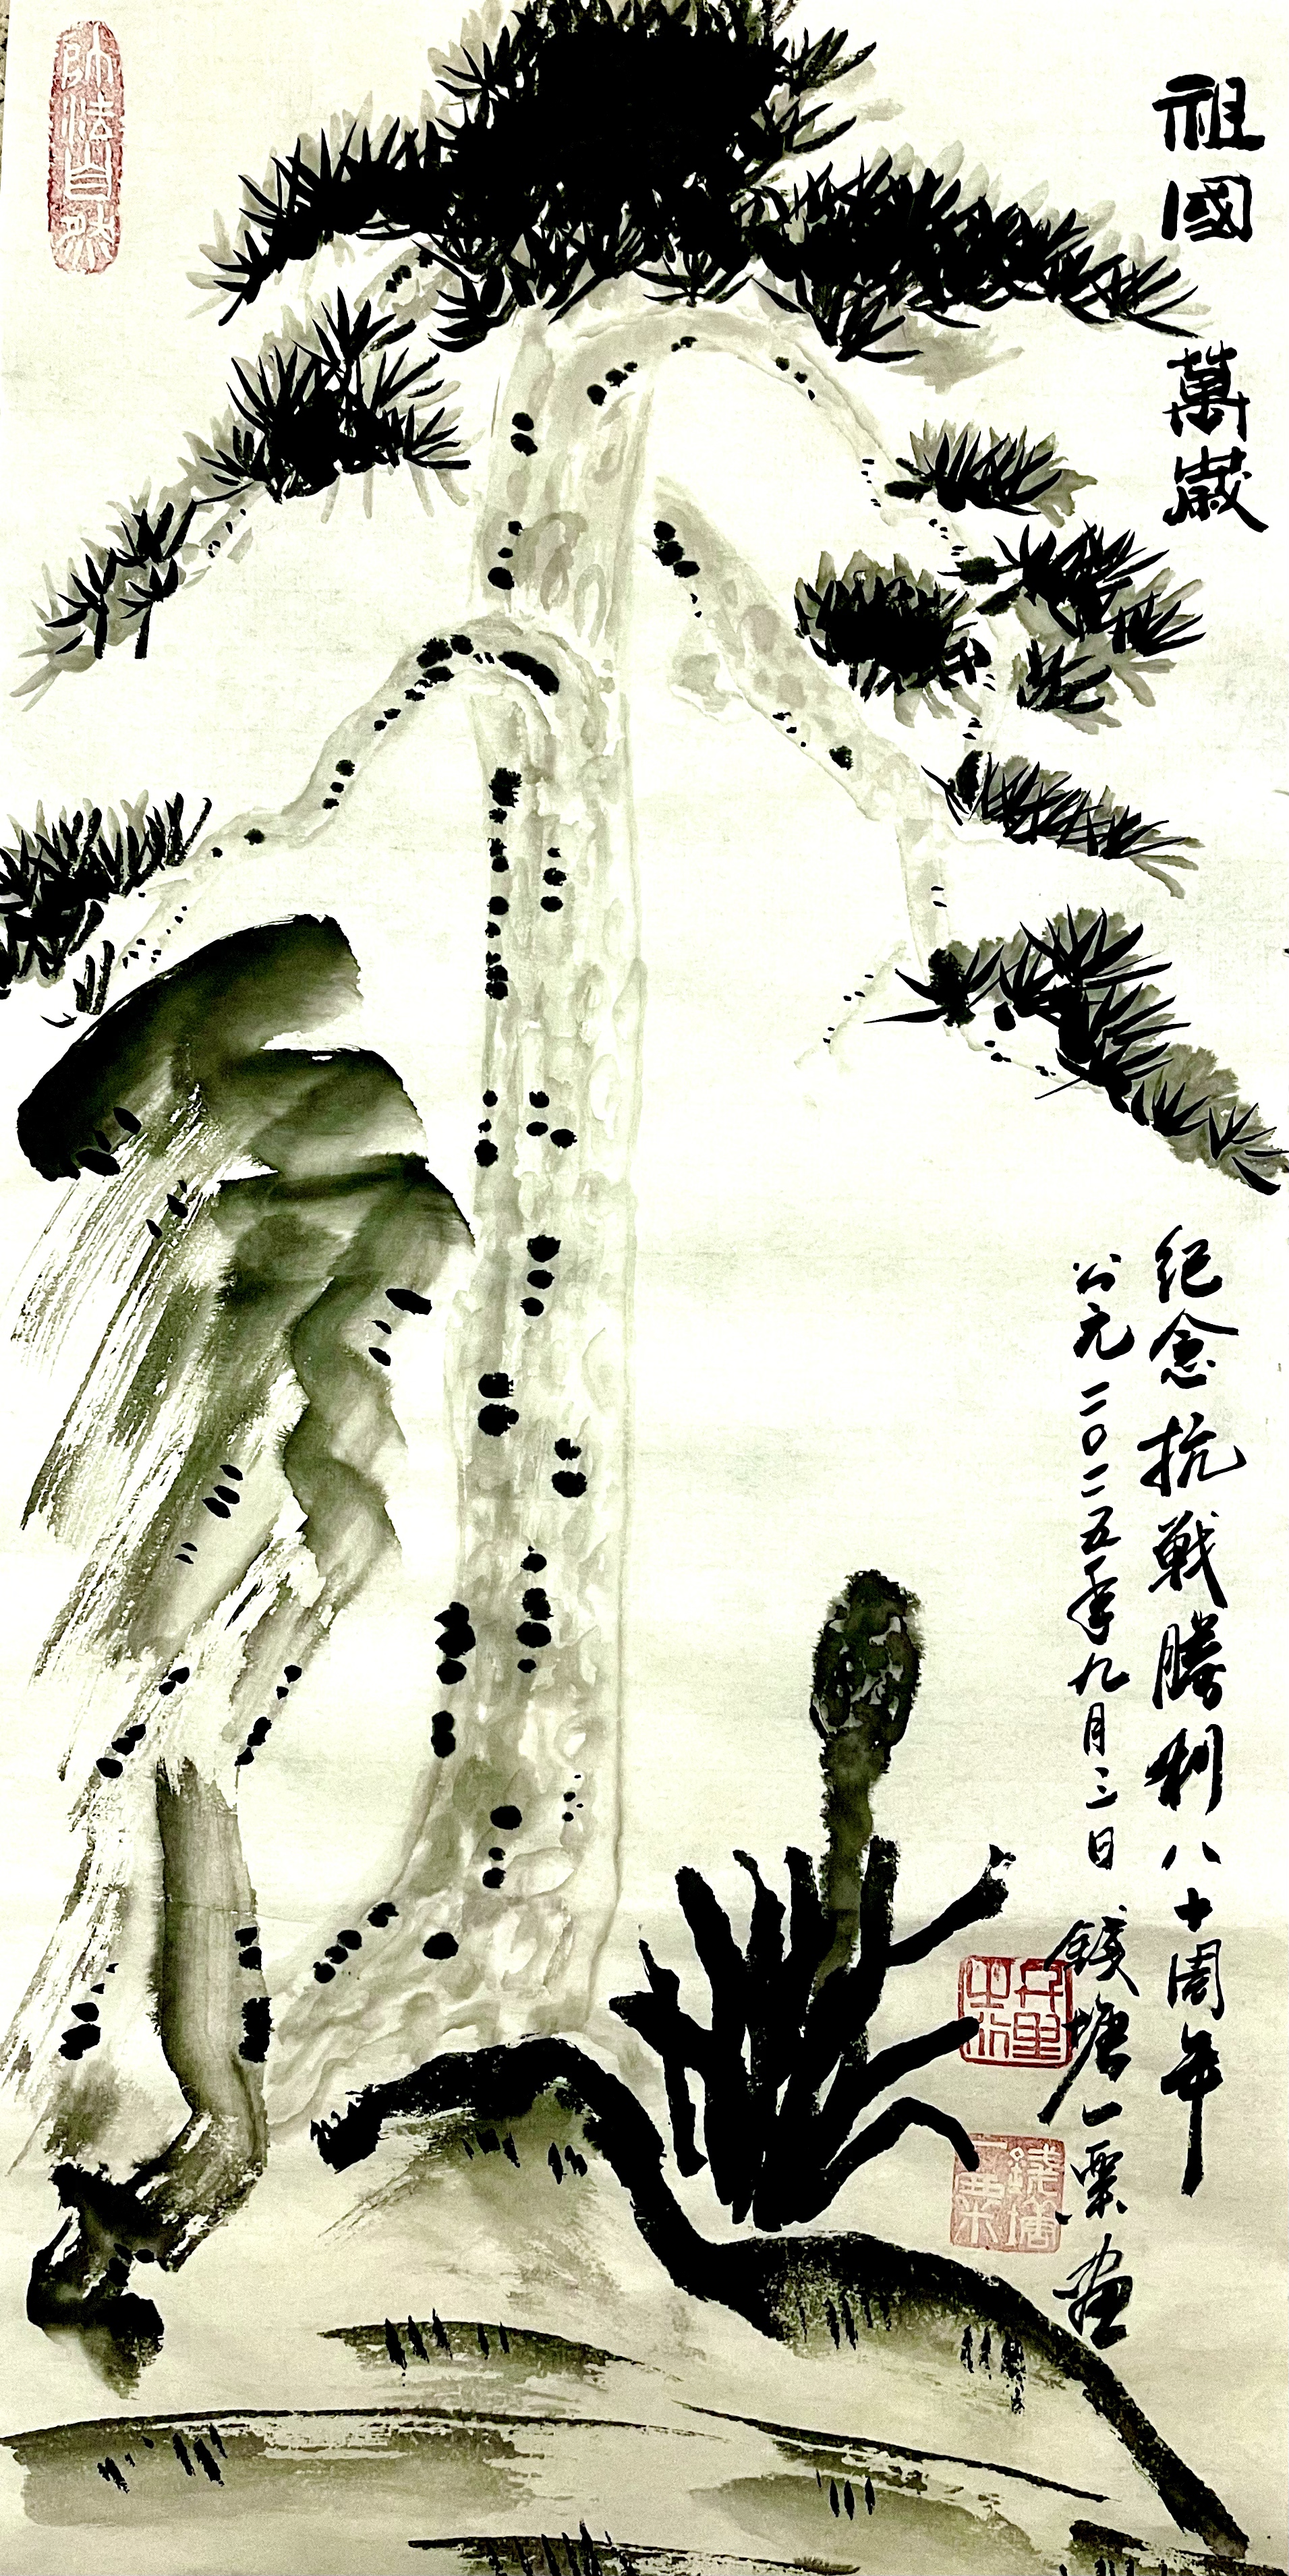 祖國萬歲
紀念抗戰勝利八十周年
公元二〇二五年九月三日 錢塘一粟画
師法自然
錢塘一粟